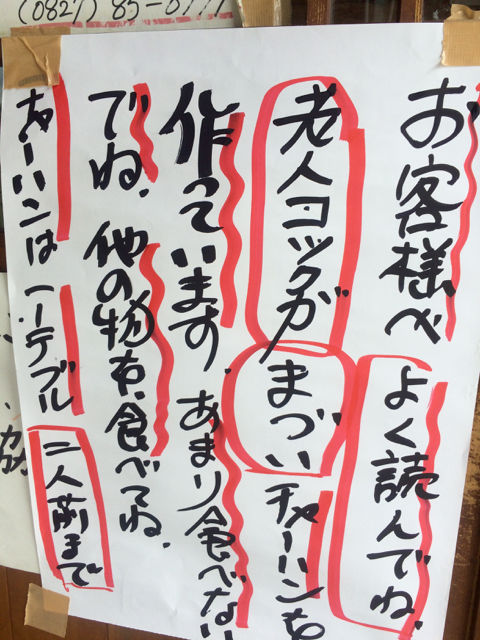 (0827) 85-0777
お客様へ よく読んでね。
老人コックが まづい チャーハンを
作っています。あまり食べない
でね、他の物を、食べてね、
チャーハンは 一テーブル 二人前まで